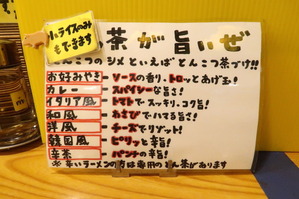 小ライスのみ
もできます
茶が旨いぜ
とんこつのシメといえばとんこつ茶づけ!!
お好みやき－ソースの香り、トロッとあげ玉!
カレー－スパイシーな旨さ!
イタリア風－トマトでスッキリ、コク旨!
和風－わさびでハマる旨さ!
洋風－チーズでリゾット!
韓国風－ピリッと辛旨!
辛茶－パンチの辛旨!
※辛いラーメンの方は専用のとん茶があります